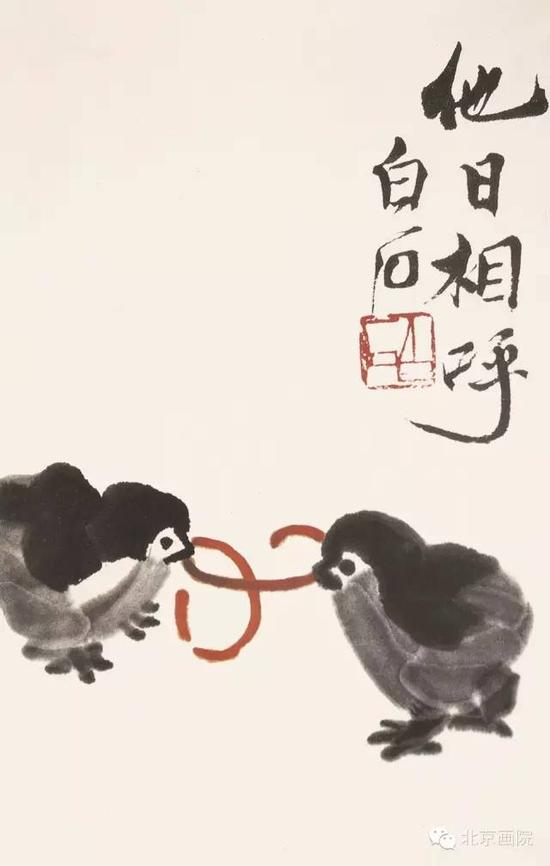 他日相呼
白石
北京画院